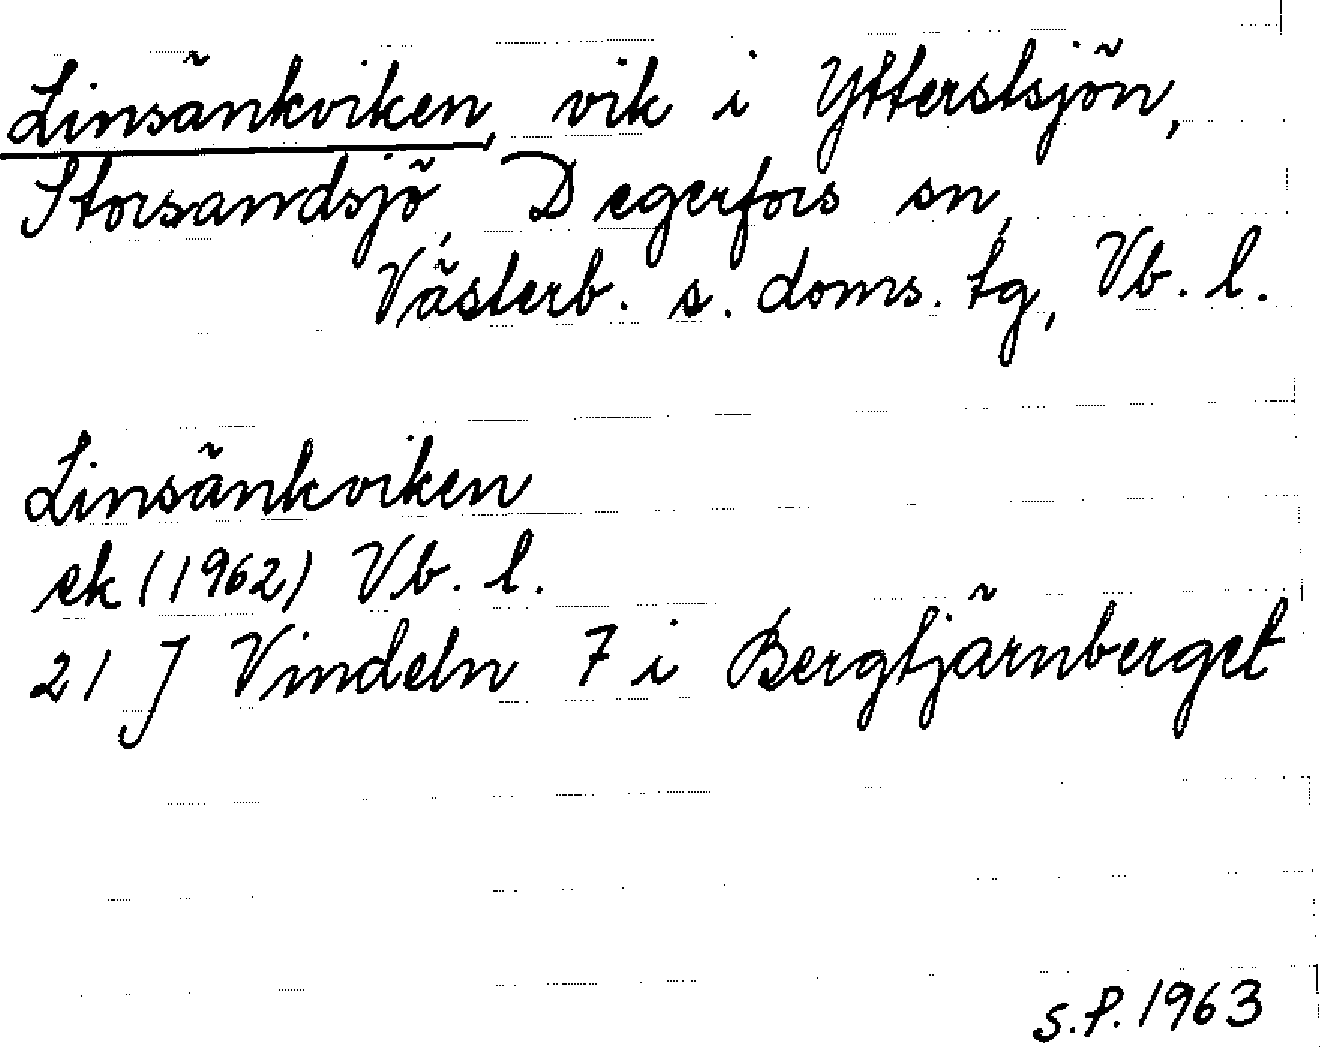 Linsänkviken, vik i Ytterstsjön,
Storsandsjö, Degerfors sn,
Västerb. s. doms. tg, Vb. l.
Linsänkviken
ek (1962) Vb. l.
21 J Vindeln 7 i Bergtjärnberget
S.P. 1963